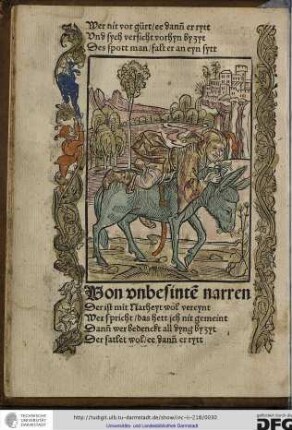 Wer nit vor gürt/ee dañ er rytt
Vnd sych versicht vorhyn by zyt
Des spott man/falt er an eyn sytt
Von vnbesintẽ narren
Der ist mit Narheyt wol vereynt
Wer spricht/das hett jch nit gemeint
Dañ wer bedenckt all dyng by zyt
Der sattlet wol/ee dañ er rytt
http://tudigit.ulb.tu-darmstadt.de/show/inc-ii-218/0030
Universitäts- und Landesbibliothek Darmstadt
TECHNISCHE
UNIVERSITÄT
DARMSTADT
DFG